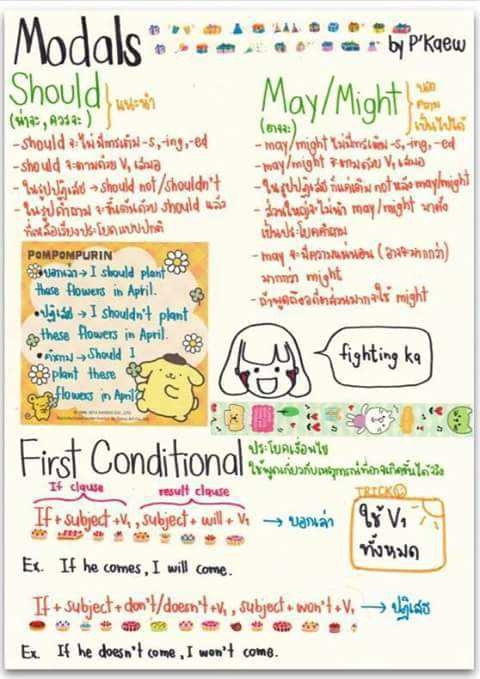 Modals by P'Kaew
Should } แนะนำ
(น่าจะ, ควรจะ)
- should จะไม่มีการเติม -s, -ing, -ed
- should จะตามด้วย V₁ เสมอ
- ในรูปปฏิเสธ → should not/shouldn't
- ในรูปคำถาม จะขึ้นต้นด้วย should แล้ว
ที่เหลือเรียงประโยคแบบปกติ
May/Might } บอก
ความ
เป็นไปได้
(อาจจะ)
- may/might ไม่มีการเติม -s, -ing, -ed
- may/might จะตามด้วย V₁ เสมอ
- ในรูปปฏิเสธ ก็แค่เติม not หลัง may/might
- ส่วนใหญ่จะไม่นำ may/might มาตั้ง
เป็นประโยคคำถาม
- may จะมีความแน่นอน (อาจจะมากกว่า)
มากกว่า might
- ถ้าพูดถึงอดีตส่วนมากจะใช้ might
POMPOMPURIN
• บอกเล่า → I should plant
these flowers in April.
• ปฏิเสธ → I shouldn't plant
these flowers in April.
• คำถาม → Should I
plant these
flowers in April
fighting ka
First Conditional
ประโยคเงื่อนไข
ใช้พูดเกี่ยวกับเหตุการณ์ที่อาจเกิดขึ้นได้จริง
If clause result clause
If + subject + V₁, subject + will + V₁ → บอกเล่า
TRICK
ใช้ V₁
ทั้งหมด
Ex. If he comes, I will come.
If + subject + don't/doesn't + V₁, subject + won't + V₁ → ปฏิเสธ
Ex. If he doesn't come, I won't come.